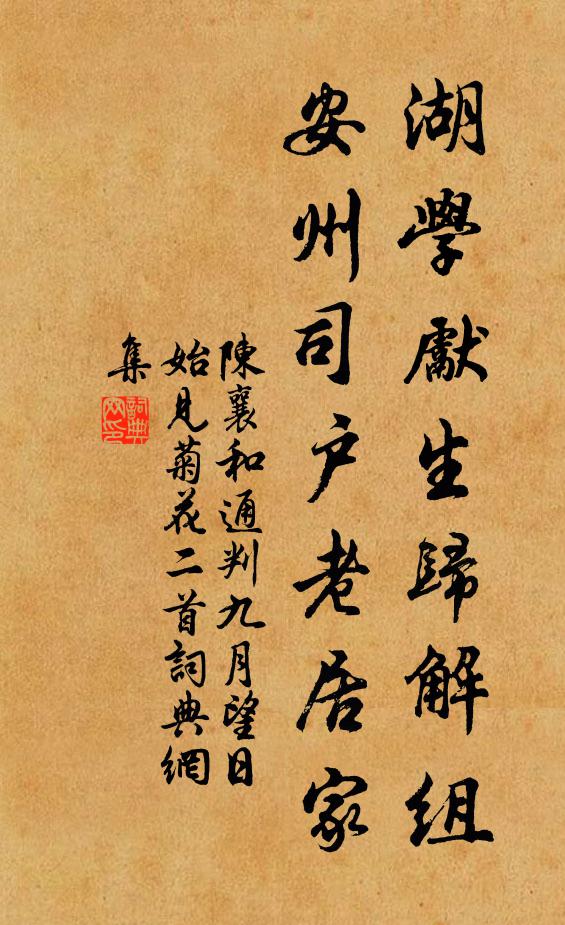 湖學獻生歸解組
安州司户老居家
陳襄和通判九月望日
始見菊花二首詞典網
集
詞典網印